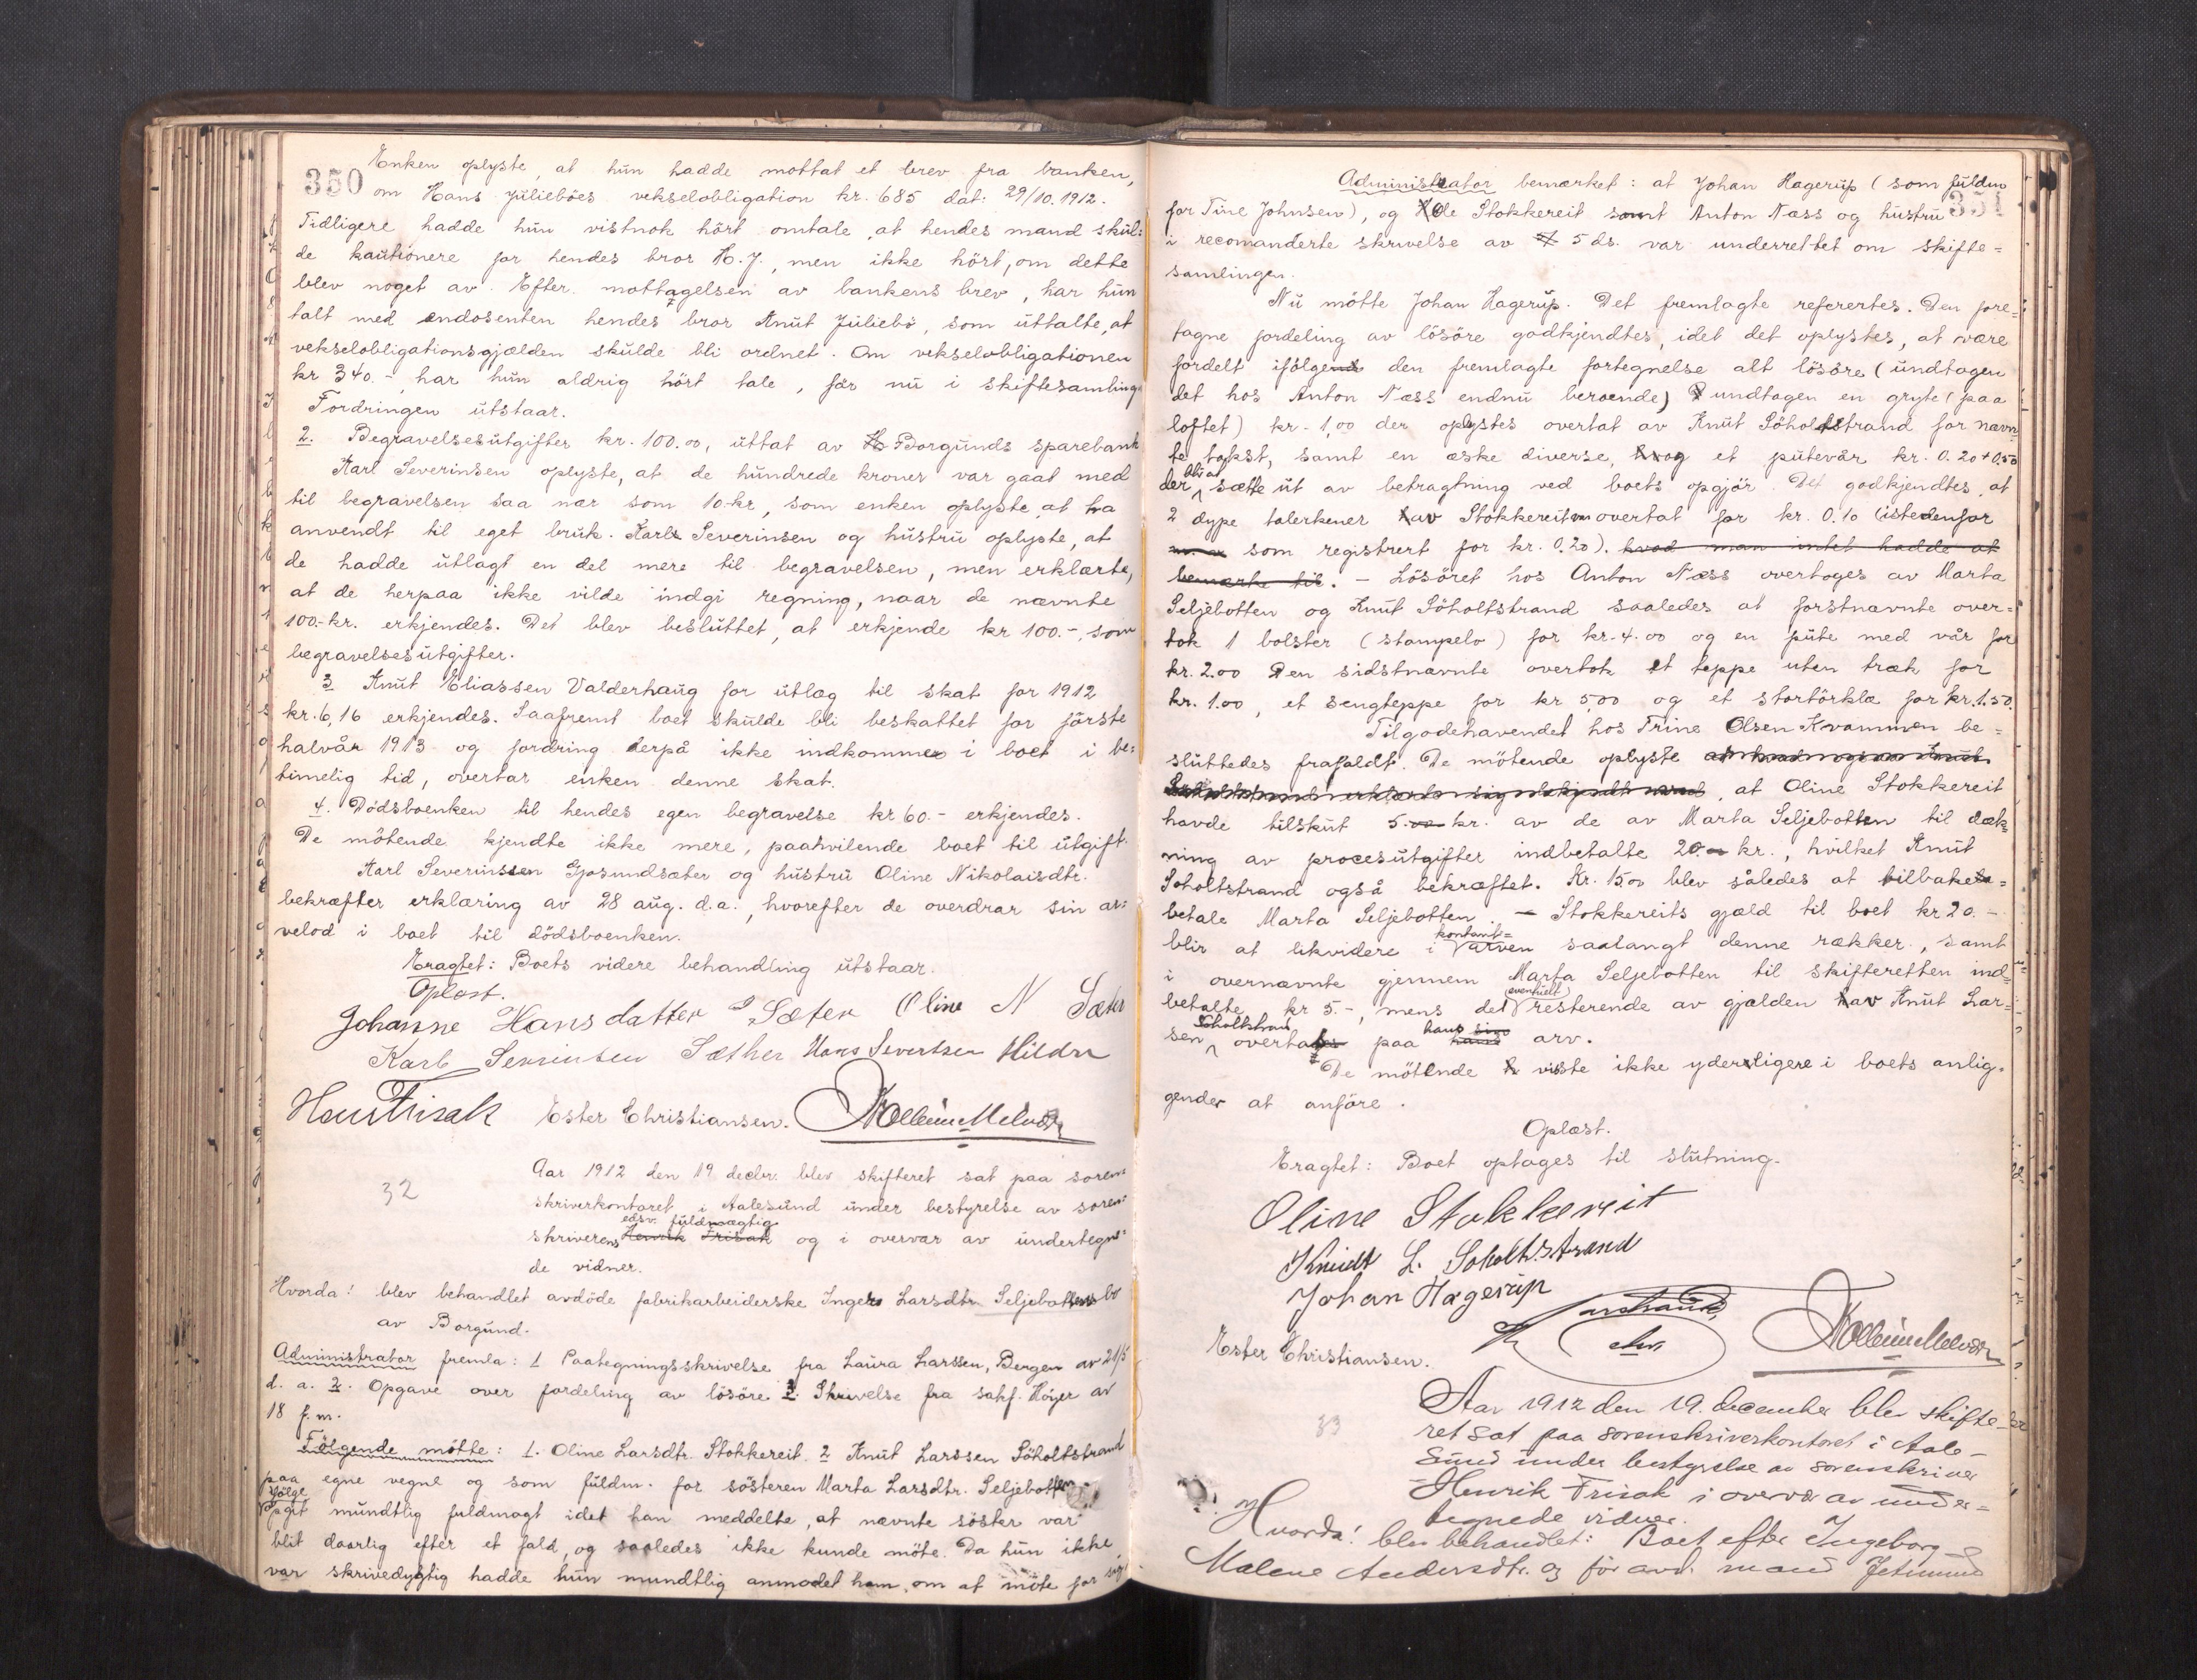 350
Enken oplyste, at hun hadde mottat et brev fra banken,
om Hans Julieböes vekselobligation kr. 685 dat: 29/10.1912.
Tidligere hadde hun vistnok hört omtale, at hendes mand skul:
de kautionere for hendes bror H.J., men ikke hört, om dette
blev noget av. Efter mottagelsen av bankens brev, har hun
talt med endosenten hendes bror Knut Juliebö, som uttalte, at
vekselobligationsgjælden skulde bli ordnet. Om vekselobligationen
kr 340.- har hun aldrig hört tale, för nu i skiftesamling.
Fordringen utstaar.
2. Begravelsesutgifter kr. 100.00, uttat av Borgunds sparebank
Karl Severinsen oplyste, at de hundrede kroner var gaat med
til begravelsen saa nær som 10.-kr, som enken oplyste at ha
anvendt til eget bruk. Karl Severinsen og hustru oplyste, at
de hadde utlagt en del mere til begravelsen, men erklærte,
at de herpaa ikke vilde indgi regning, naar de nævnte
100.-kr. erkjendes. Det blev besluttet, at erkjende kr 100.-, som
begravelsesutgifter.
3 Knut Eliassen Valderhaug for utlæg til skat for 1912
kr. 6,16 erkjendes. Saafremt boet skulde bli beskattet for förste
halvår 1913 og fordring derpå ikke indkommer i boet i be:
timelig tid, overtar enken denne skat.
4. Dödsboenken til hendes egen begravelse kr 60.- erkjendes.
De mötende kjendte ikke mere, paahvilende boet til utgift.
Karl Severinssen Gjosundsæter og hustru Oline Nikolaisdtr.
bekræfter erklæring av 28 aug. d.a., hvorefter de overdrar sin ar:
velod i boet til dödsboenken.
Eragtet: Boets videre behandling utstaar.
Oplæst.
Johanne Hansdatter Sæter Oline N Sæter
Karl Severinsen Sæther Hans Severtsen Hildre
Henr Frisak Ester Christiansen.
32
Aar 1912 den 19 decbr. blev skifteret sat paa soren:
skriverkontoret i Aalesund under bestyrelse av soren:
edsv. fuldmægtig
skriverens Henrik Frisak og i overvær av undertegne:
de vidner.
Hvorda! blev behandlet avdöde fabrikarbeiderske Inger Larsdtr. Seljebottens bo
av Borgund.
Administrator fremla: 1 Paategningsskrivelse fra Laura Larssen, Bergen av 21/5
d. a. 2. Opgave over fordeling av lösöre 3. Skrivelse fra sahf. Höyer av
18 f.m.
Fölgende mötte: 1. Oline Larsdtr. Stokkereit. 2 Knut Larssen Söholtstrand
paa egne vegne og som fuldm. for sösteren Marta Larsdtr. Seljebotten
fölge
mundtlig fuldmagt idet han meddelte, at nævnte söster var
blit daarlig efter et fald, og saaledes ikke kunde möte. Da hun ikke
var skrivedygtig hadde hun mundtlig anmodet ham om at möte for sig.
351
Administrator bemærket: at Johan Hagerup (som fuldm
for Tine Johnsen), og Ole Stokkereit samt Anton Næss og hustru
i recomanderte skrivelse av 5 ds. var underrettet om skifte=
samlingen.
Nu mötte Johan Hagerup. Det fremlagte refertes. Den fore=
tagne fordeling av lösöre godkjendtes, idet det oplystes, at være
fordelt ifölge den fremlagte fortegnelse alt lösöre (undtagen
det hos Anton Næss endnu beroende) undtagen en gryte (paa
loftet) kr. 1,00 der oplystes overtat av Knut Söholtstrand for nævn
te takst, samt en æske diverse, og et putevår kr. 0.20 + 0.50
der sætte ut av betragtning ved boets opgjör. Det godkjendtes, at
2 dype talerkener av Stokkereit overtat for kr. 0.10 (istedenfor
som registrert for kr. 0.20). hvad man intet hadde at
bemærke til. - Lösöret hos Anton Næss overtoges av Marta
Seljebotten og Knut Söholtstrand saaledes at förstnævnte over=
tok 1 bolster (stampelo) for kr. 4.00 og en pute med vår for
kr. 2.00 Den sidstnævnte overtok et teppe uten træk for
kr. 1.00, et sengteppe for kr 5,00 og et stortörklæ for kr. 1.50.
Tilgodehavendet hos Trine Olsen Kvammen be=
sluttedes frafaldt. De mötende oplyste
at Oline Stokkereit
havde tilskut 5.00 kr. av de av Marta Seljebotten til dæk
ning av procesutgifter indbetalte 20.- kr., hvilket Knut
Söholtstrand også bekræftet. Kr. 15.00 blev således at tilbake=
betale Marta Seljebotten. - Stokkereits gjæld til boet kr 20.-
kontant=
blir at likvidere i arven saalangt denne rækker, samt
i overnævnte gjennem Marta Seljebotten til skifteretten ind=
betalte kr 5.-, mens det (eventuelt) resterende av gjælden av Knut Lar=
sen Söholtstrand overtas paa hans arv.
De mötende visste ikke yderligere i boets anlig=
gender at anföre.
Oplæst.
Eragtet: Boet optages til slutning.
Oline Stokkereit
Knudt L. Soholtstrand
Johan Hagerup
Ester Christiansen.
33
Aar 1912 den 19. december blev skifte=
ret sat paa sorenskriverkontoret i Aale-
sund under bestyrelse av sorenskriver
Henrik Frisak i overvær av under=
tegnede vidner.
Hvorda! blev behandlet: Boet efter Ingeborg
Malene Andersdtr. og för avd. mand Jetmund